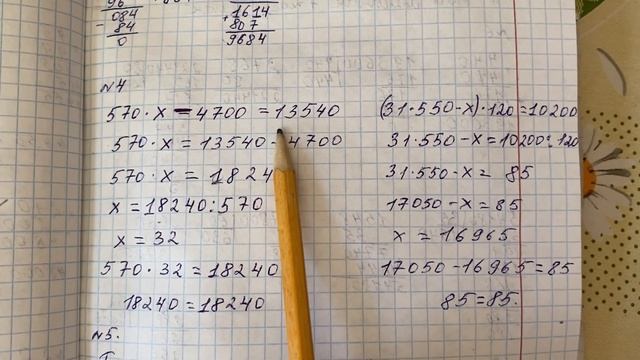 96
084
- 84
0
+ 1614
807
9684
№4
570·x - 4700 = 13540
570·x = 13540 4700
570·x = 1824
x = 18240:570
x = 32
570·32 = 18240
18240 = 18240
(31·550-x)·120=10200
31·550-x=10200:120
31·550-x= 85
17050-x=85
x = 16965
17050-16965=85
85=85.
№5.